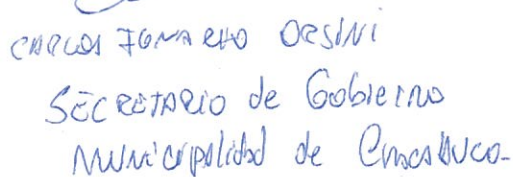 CARLOS IGNACIO ORSINI
SECRETARIO de Gobierno
Municipalidad de Chacabuco-